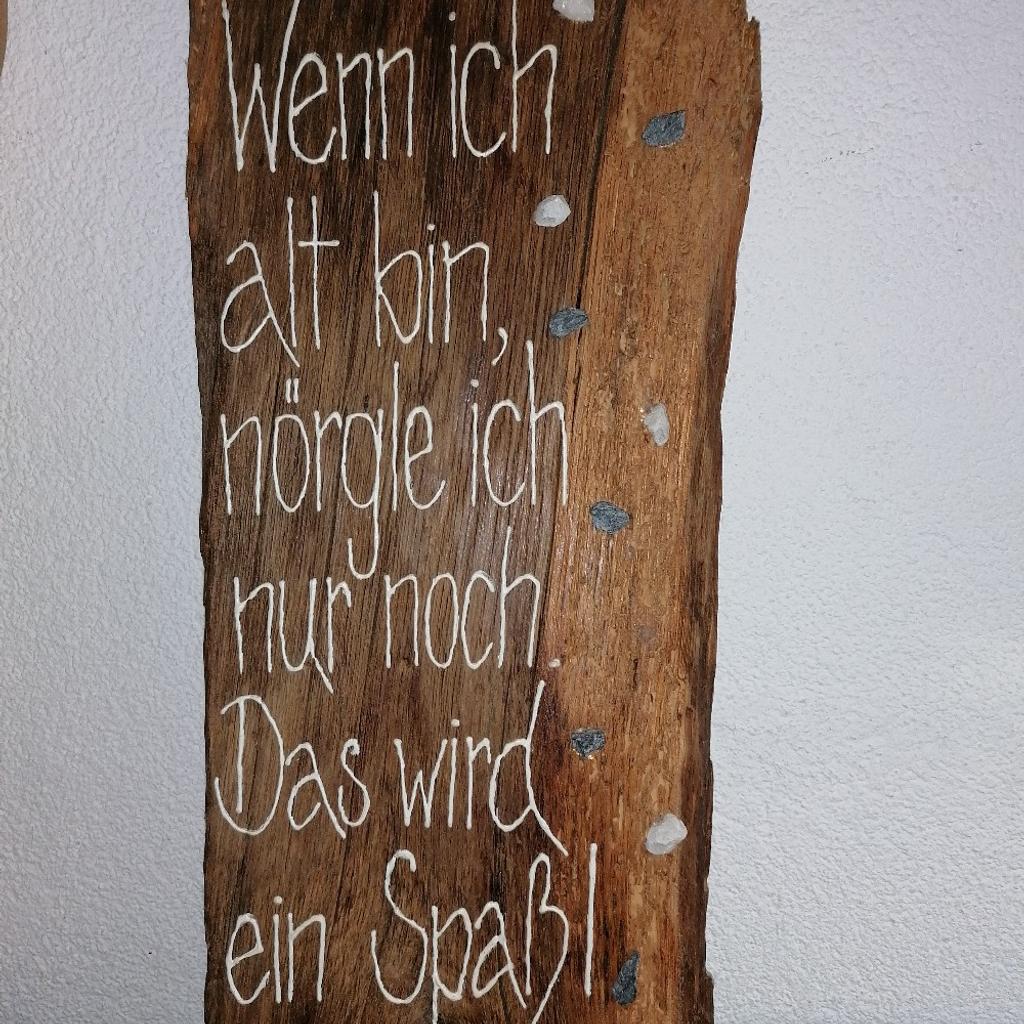 Wenn ich
alt bin,
nörgle ich
nur noch.
Das wird
ein Spaß!